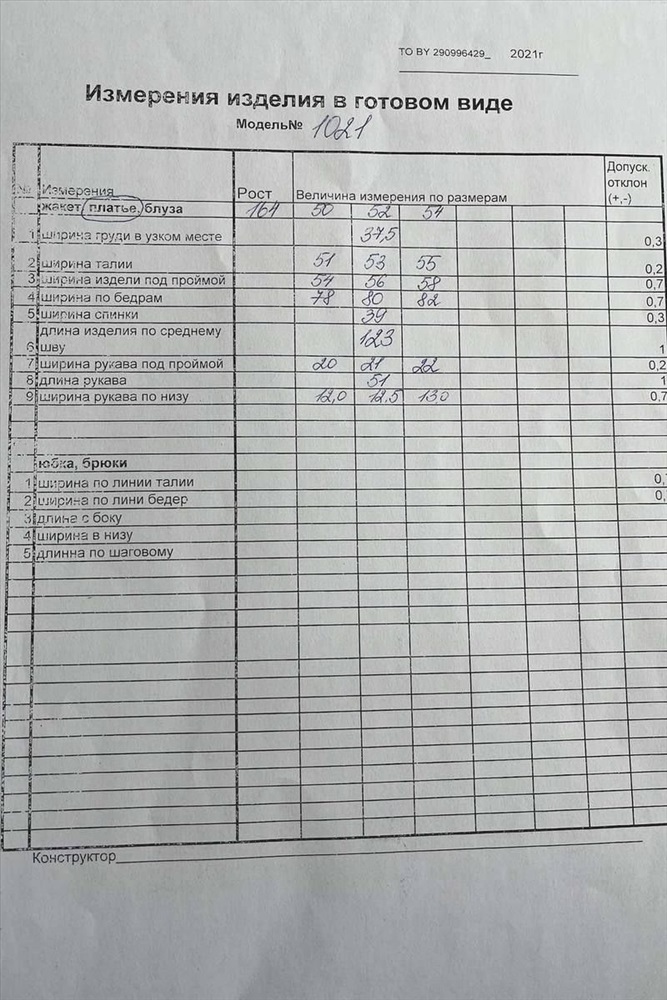 ТО BY 290996429_ 2021г
Измерения изделия в готовом виде
Модель№ 1021
№ Измерения Рост Величина измерения по размерам Допуск. отклон (+,-)
жакет, платье, блуза 164 50 52 54
1 ширина груди в узком месте 37,5 0,3
2 ширина талии 51 53 55 0,2
3 ширина издели под проймой 54 56 58 0,7
4 ширина по бедрам 78 80 82 0,7
5 ширина спинки 39 0,3
6 длина изделия по среднему шву 123 1
7 ширина рукава под проймой 20 21 22 0,2
8 длина рукава 51 1
9 ширина рукава по низу 12,0 12,5 13,0 0,7
юбка, брюки
1 ширина по линии талии 0,
2 ширина по лини бедер 0,
3 длина с боку
4 ширина в низу
5 длинна по шаговому
Конструктор